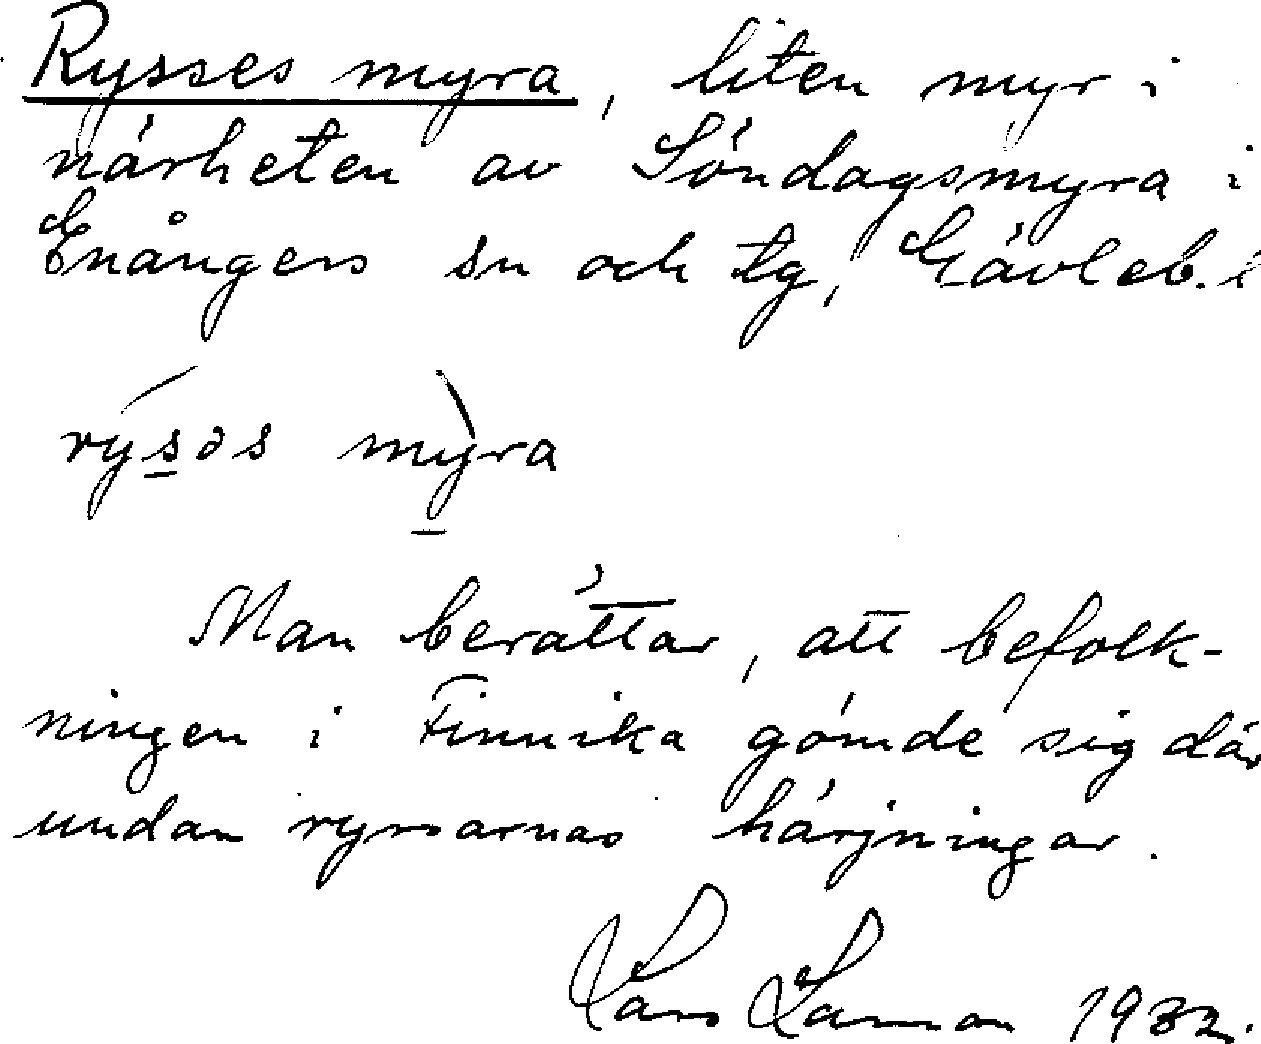 Rysses myra, liten myr i
närheten av Söndagsmyra i
Enångers sn och tg, Gävleb. l
rýsəs mỳra
Man berättar, att befolk-
ningen i Finnika gömde sig där
undan ryssarnas härjningar.
Lars Larsson 1932.